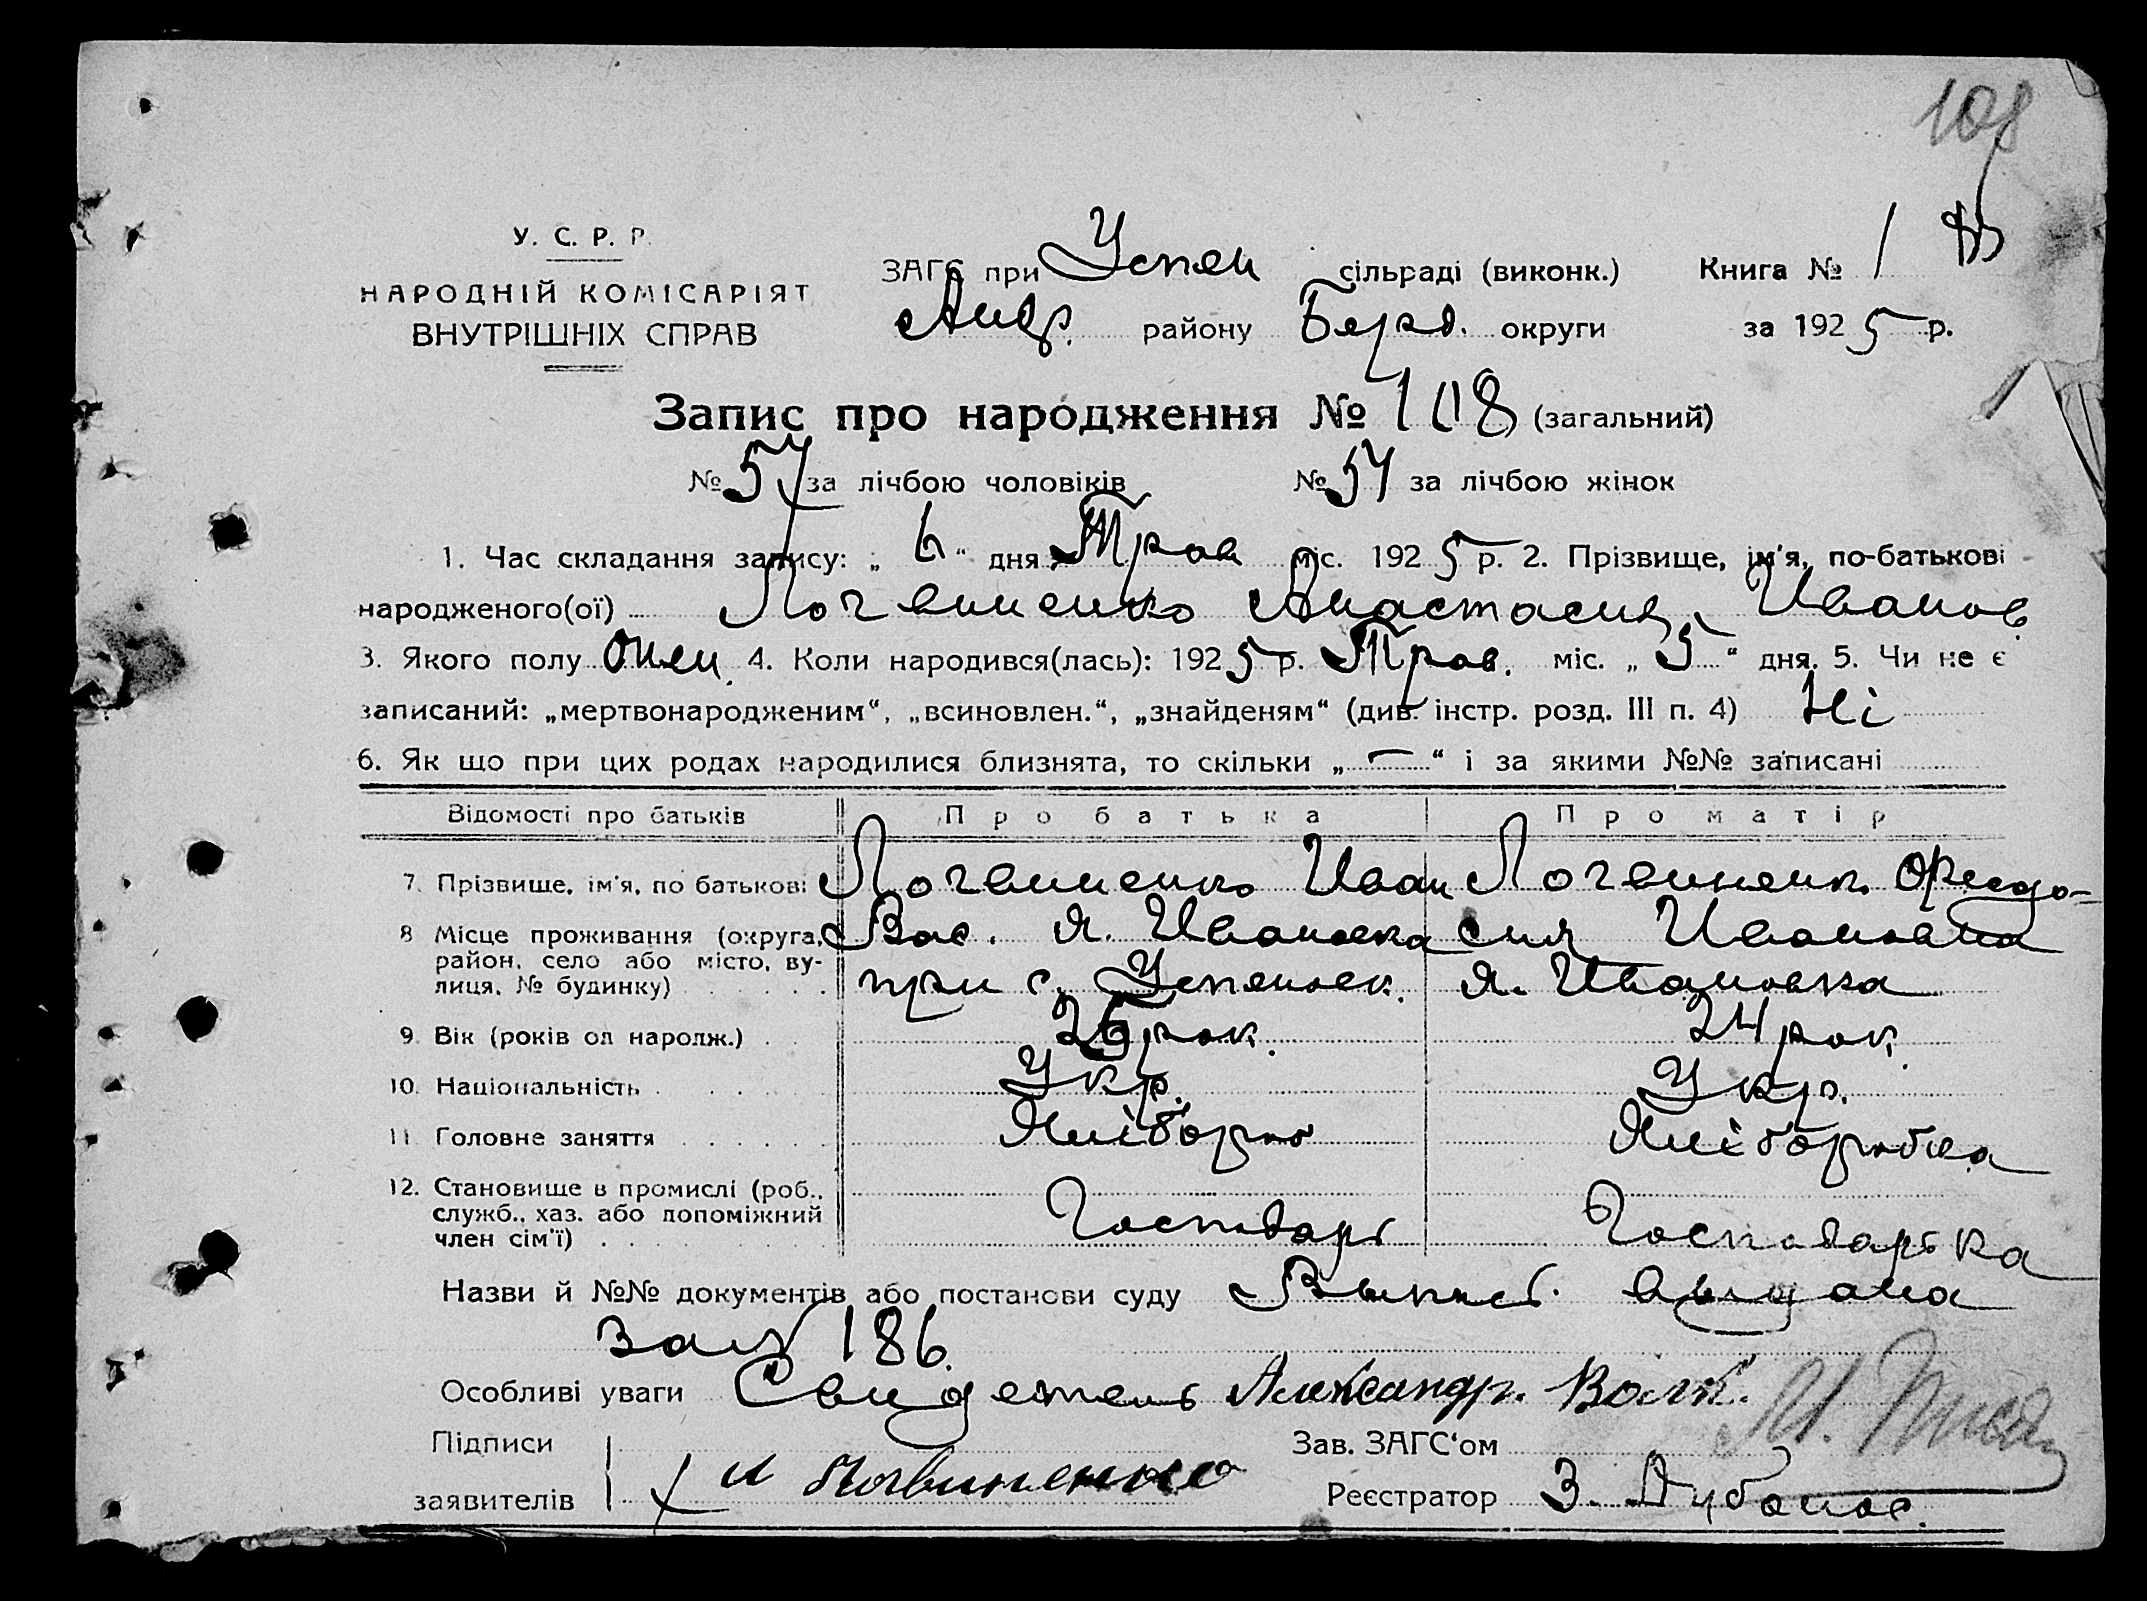 108
У. С. Р. Р.
НАРОДНІЙ КОМІСАРІЯТ
ВНУТРІШНІХ СПРАВ
ЗАГС при Успен сільраді (виконк.) Книга № 1
Андр. району Берд. округи за 1925 р.
Запис про народження № 108 (загальний)
№ 57 за лічбою чоловіків № 51 за лічбою жінок
1. Час складання запису: „ 6 “ дня Трав міс. 1925 р. 2. Прізвище, ім'я, по-батькові
народженого(ої) Логвиненко Анастасия Иванов.
3. Якого полу жен. 4. Коли народився(лась): 1925 р. Трав. міс. „ 5 “ дня. 5. Чи не є
записаний: „мертвонародженим“, „всиновлен.“, „знайденям“ (див. інстр. розд. III п. 4) Ні
6. Як що при цих родах народилися близнята, то скільки „ — “ і за якими №№ записані
Відомості про батьків Про батька Про матір
7. Прізвище, ім'я, по батькові Логвиненко Иван Логвиненк. Феодо-
8 Місце проживання (округа, Вас. х. Ивановка сия Ивановна
район, село або місто, ву-
лиця, № будинку) при с. Успеновк. х. Ивановка
9. Вік (років од народж.) 26 рок. 24 рок.
10. Національність Укр. Укр.
11. Головне заняття Хлібороб Хліборобка
12. Становище в промислі (роб.,
служб., хаз. або допоміжний
член сім'ї) Господарь Господарька
Назви й №№ документів або постанови суду Выпись выдана
за № 186.
Особливі уваги Свидетель Александр. Волк.
Підписи
заявителів И Логвиненко
Зав. ЗАГС'ом
Реєстратор З.